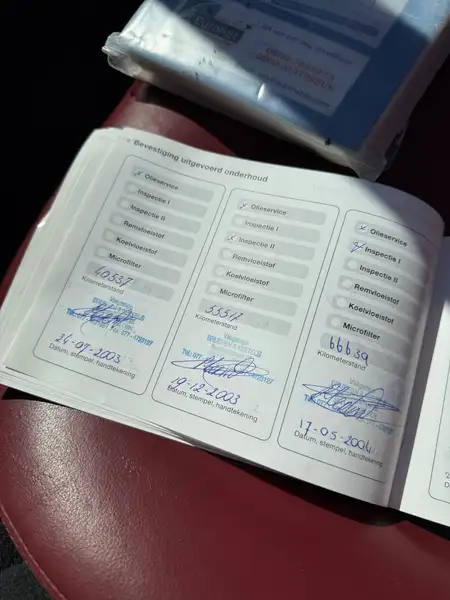 Bevestiging uitgevoerd onderhoud
Olieservice
Inspectie I
Inspectie II
Remvloeistof
Koelvloeistof
Microfilter
40537
Kilometerstand
24-07-2003
Datum, stempel, handtekening
Olieservice
Inspectie I
Inspectie II
Remvloeistof
Koelvloeistof
Microfilter
55517
Kilometerstand
19-12-2003
Datum, stempel, handtekening
Olieservice
Inspectie I
Inspectie II
Remvloeistof
Koelvloeistof
Microfilter
66639
Kilometerstand
17-05-2004
Datum, stempel, handtekening